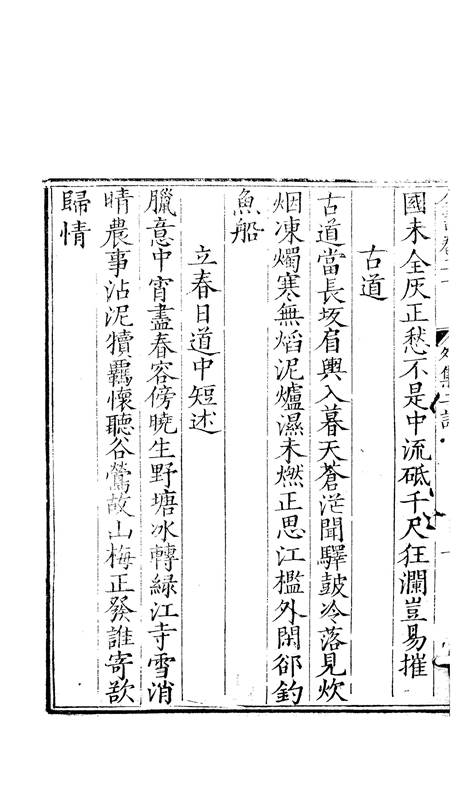 國未全灰正愁不是中流砥千尺狂瀾豈易摧
古道
古道當長坂肩輿入暮天蒼茫聞驛鼓冷落見炊
烟凍燭寒無焰泥爐濕未燃正思江檻外閑卻釣
魚船
立春日道中短述
臘意中宵盡春容傍曉生野塘冰轉綠江寺雪消
晴農事沾泥犢羈懷聽谷鶯故山梅正發誰寄欲
歸情